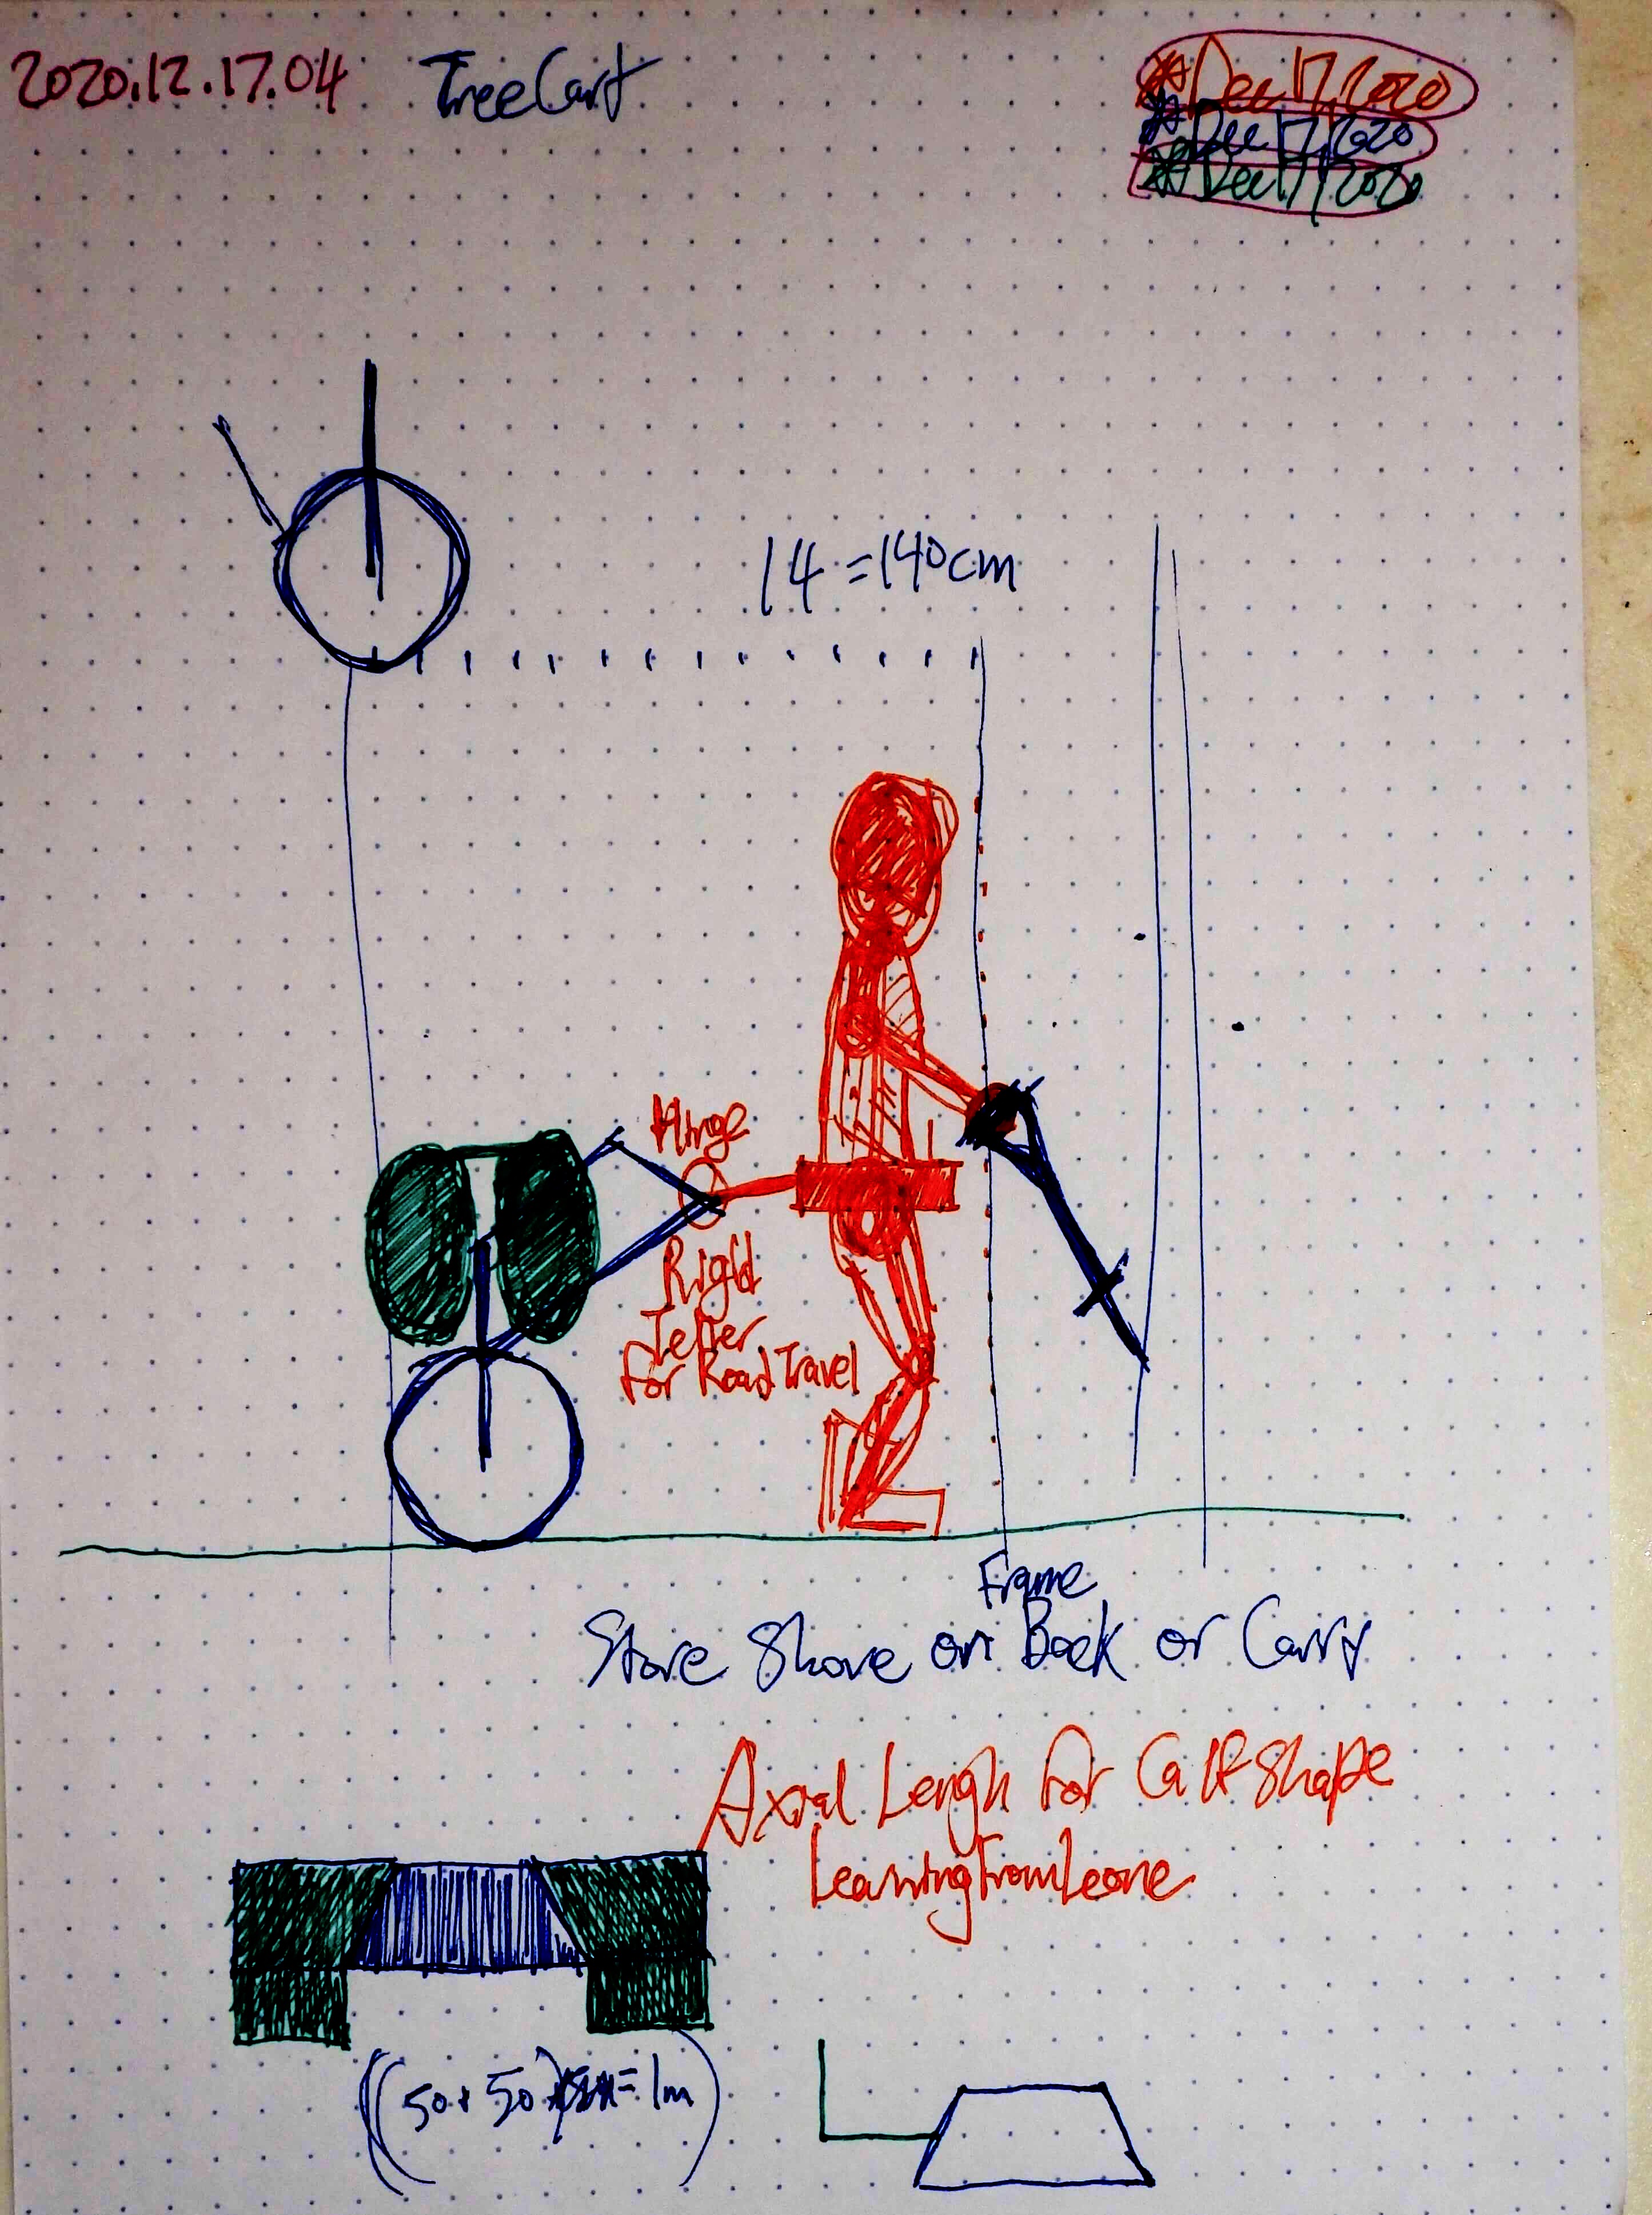 2020.12.17.04 TreeCart
#Dec 17, 2020
#Dec 17, 2020
#Dec 17, 2020
14 = 140cm
Hinge
Rigid
for Road Travel
Frame
Store Shove on Back or Carry
Axial Lengh for Calf Shape
Learning From Leone
((50+50) = 1m)